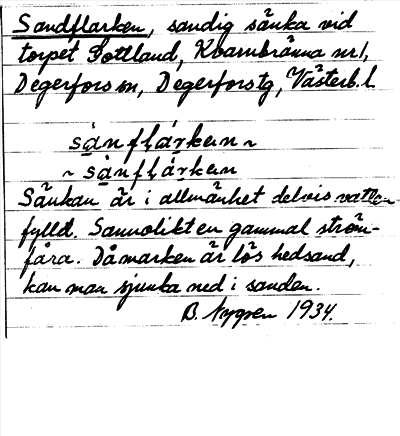 Sandflarken, sandig sänka vid
torpet Gottland, Kvarnbränna nr 1,
Degerfors sn, Degerfors tg, Västerb. l.
sánflárkən ~
~ sànflárkən
Sänkan är i allmänhet delvis vatten-
fylld. Sannolikt en gammal ström-
fåra. Då marken är lös hedsand,
kan man sjunka ned i sanden.
B. Nygren 1934.